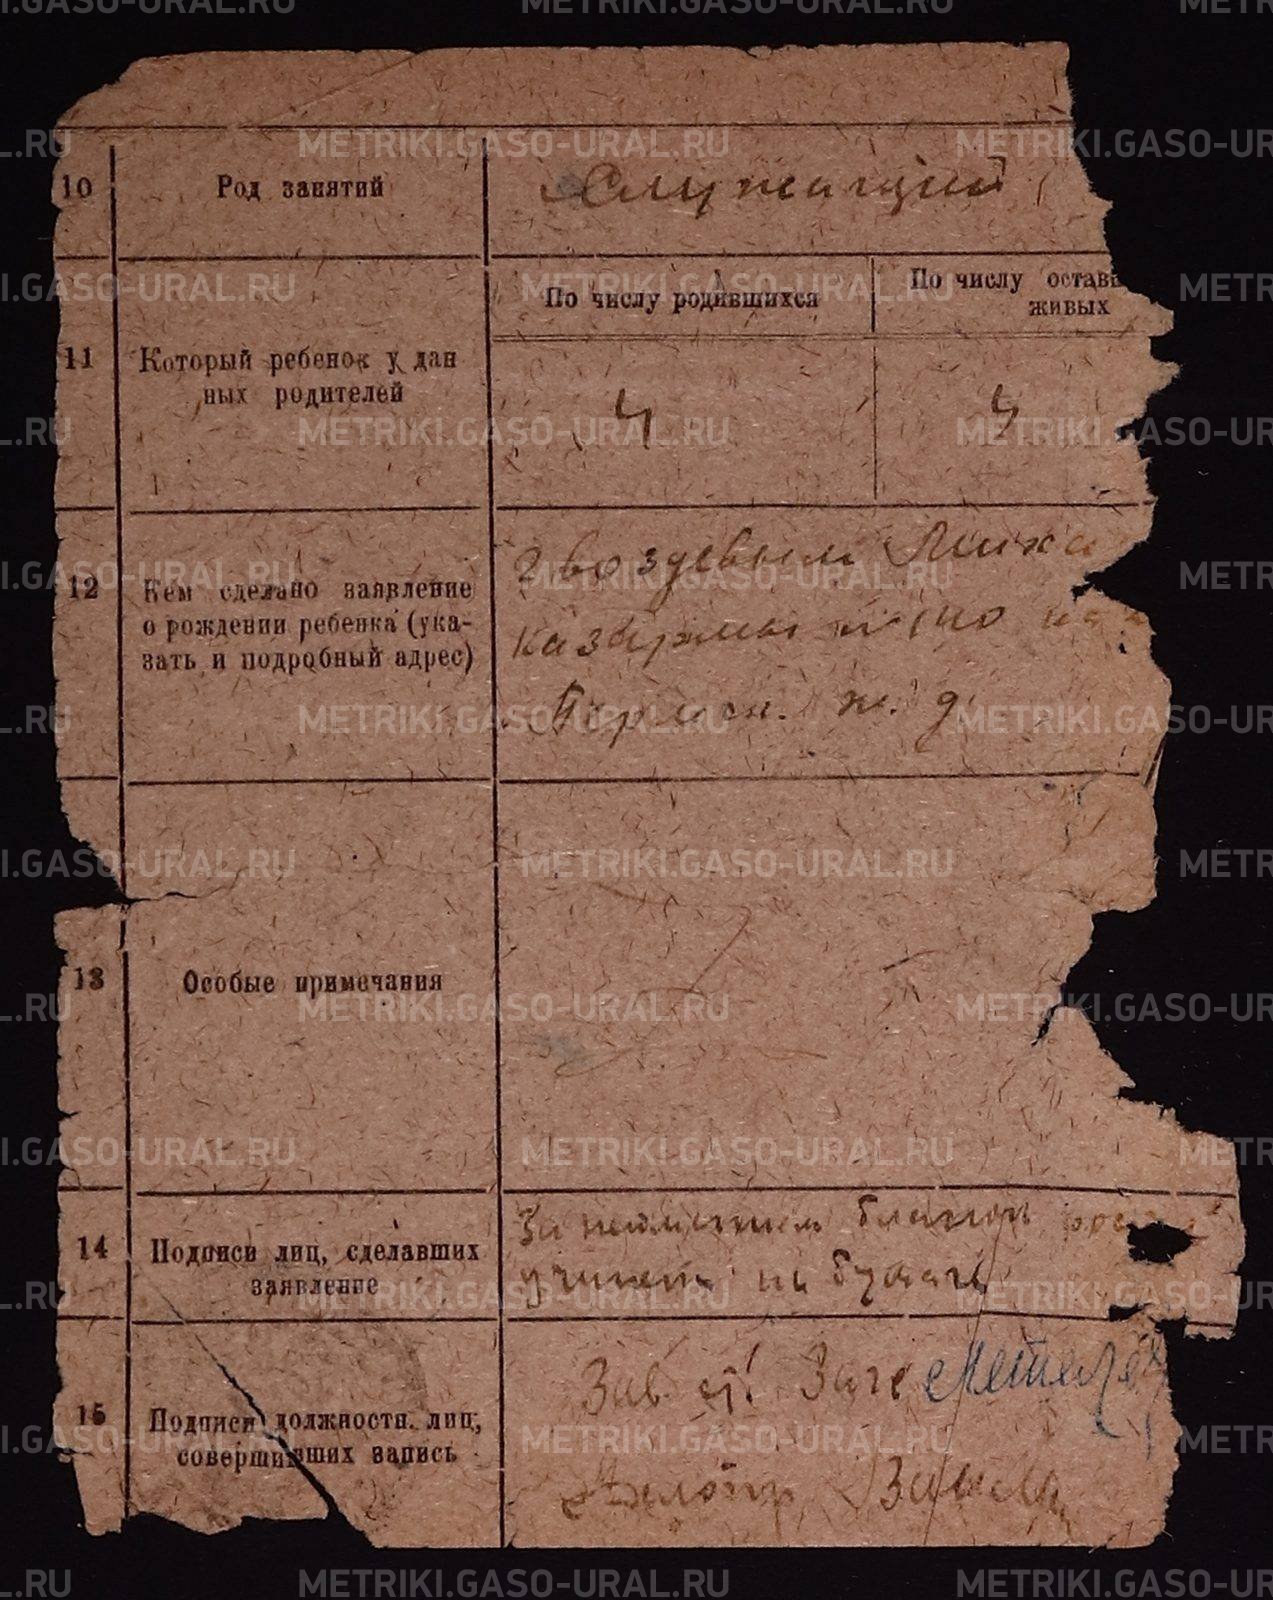 10
Род занятий
Служащий
11
Который ребенок у дан
ных родителей
По числу родившихся
По числу остав
живых
4
4
12
Кем сделано заявление
о рождении ребенка (ука-
зать и подробный адрес)
Гвоздевым Миха
казармы
Пермск. ж. д.
13
Особые примечания
14
Подписи лиц, сделавших
заявление
За неимением бланков
на бумаге
15
Подписи должностн. лиц,
совершивших запись
Зав. Загс
METRIKI.GASO-URAL.RU